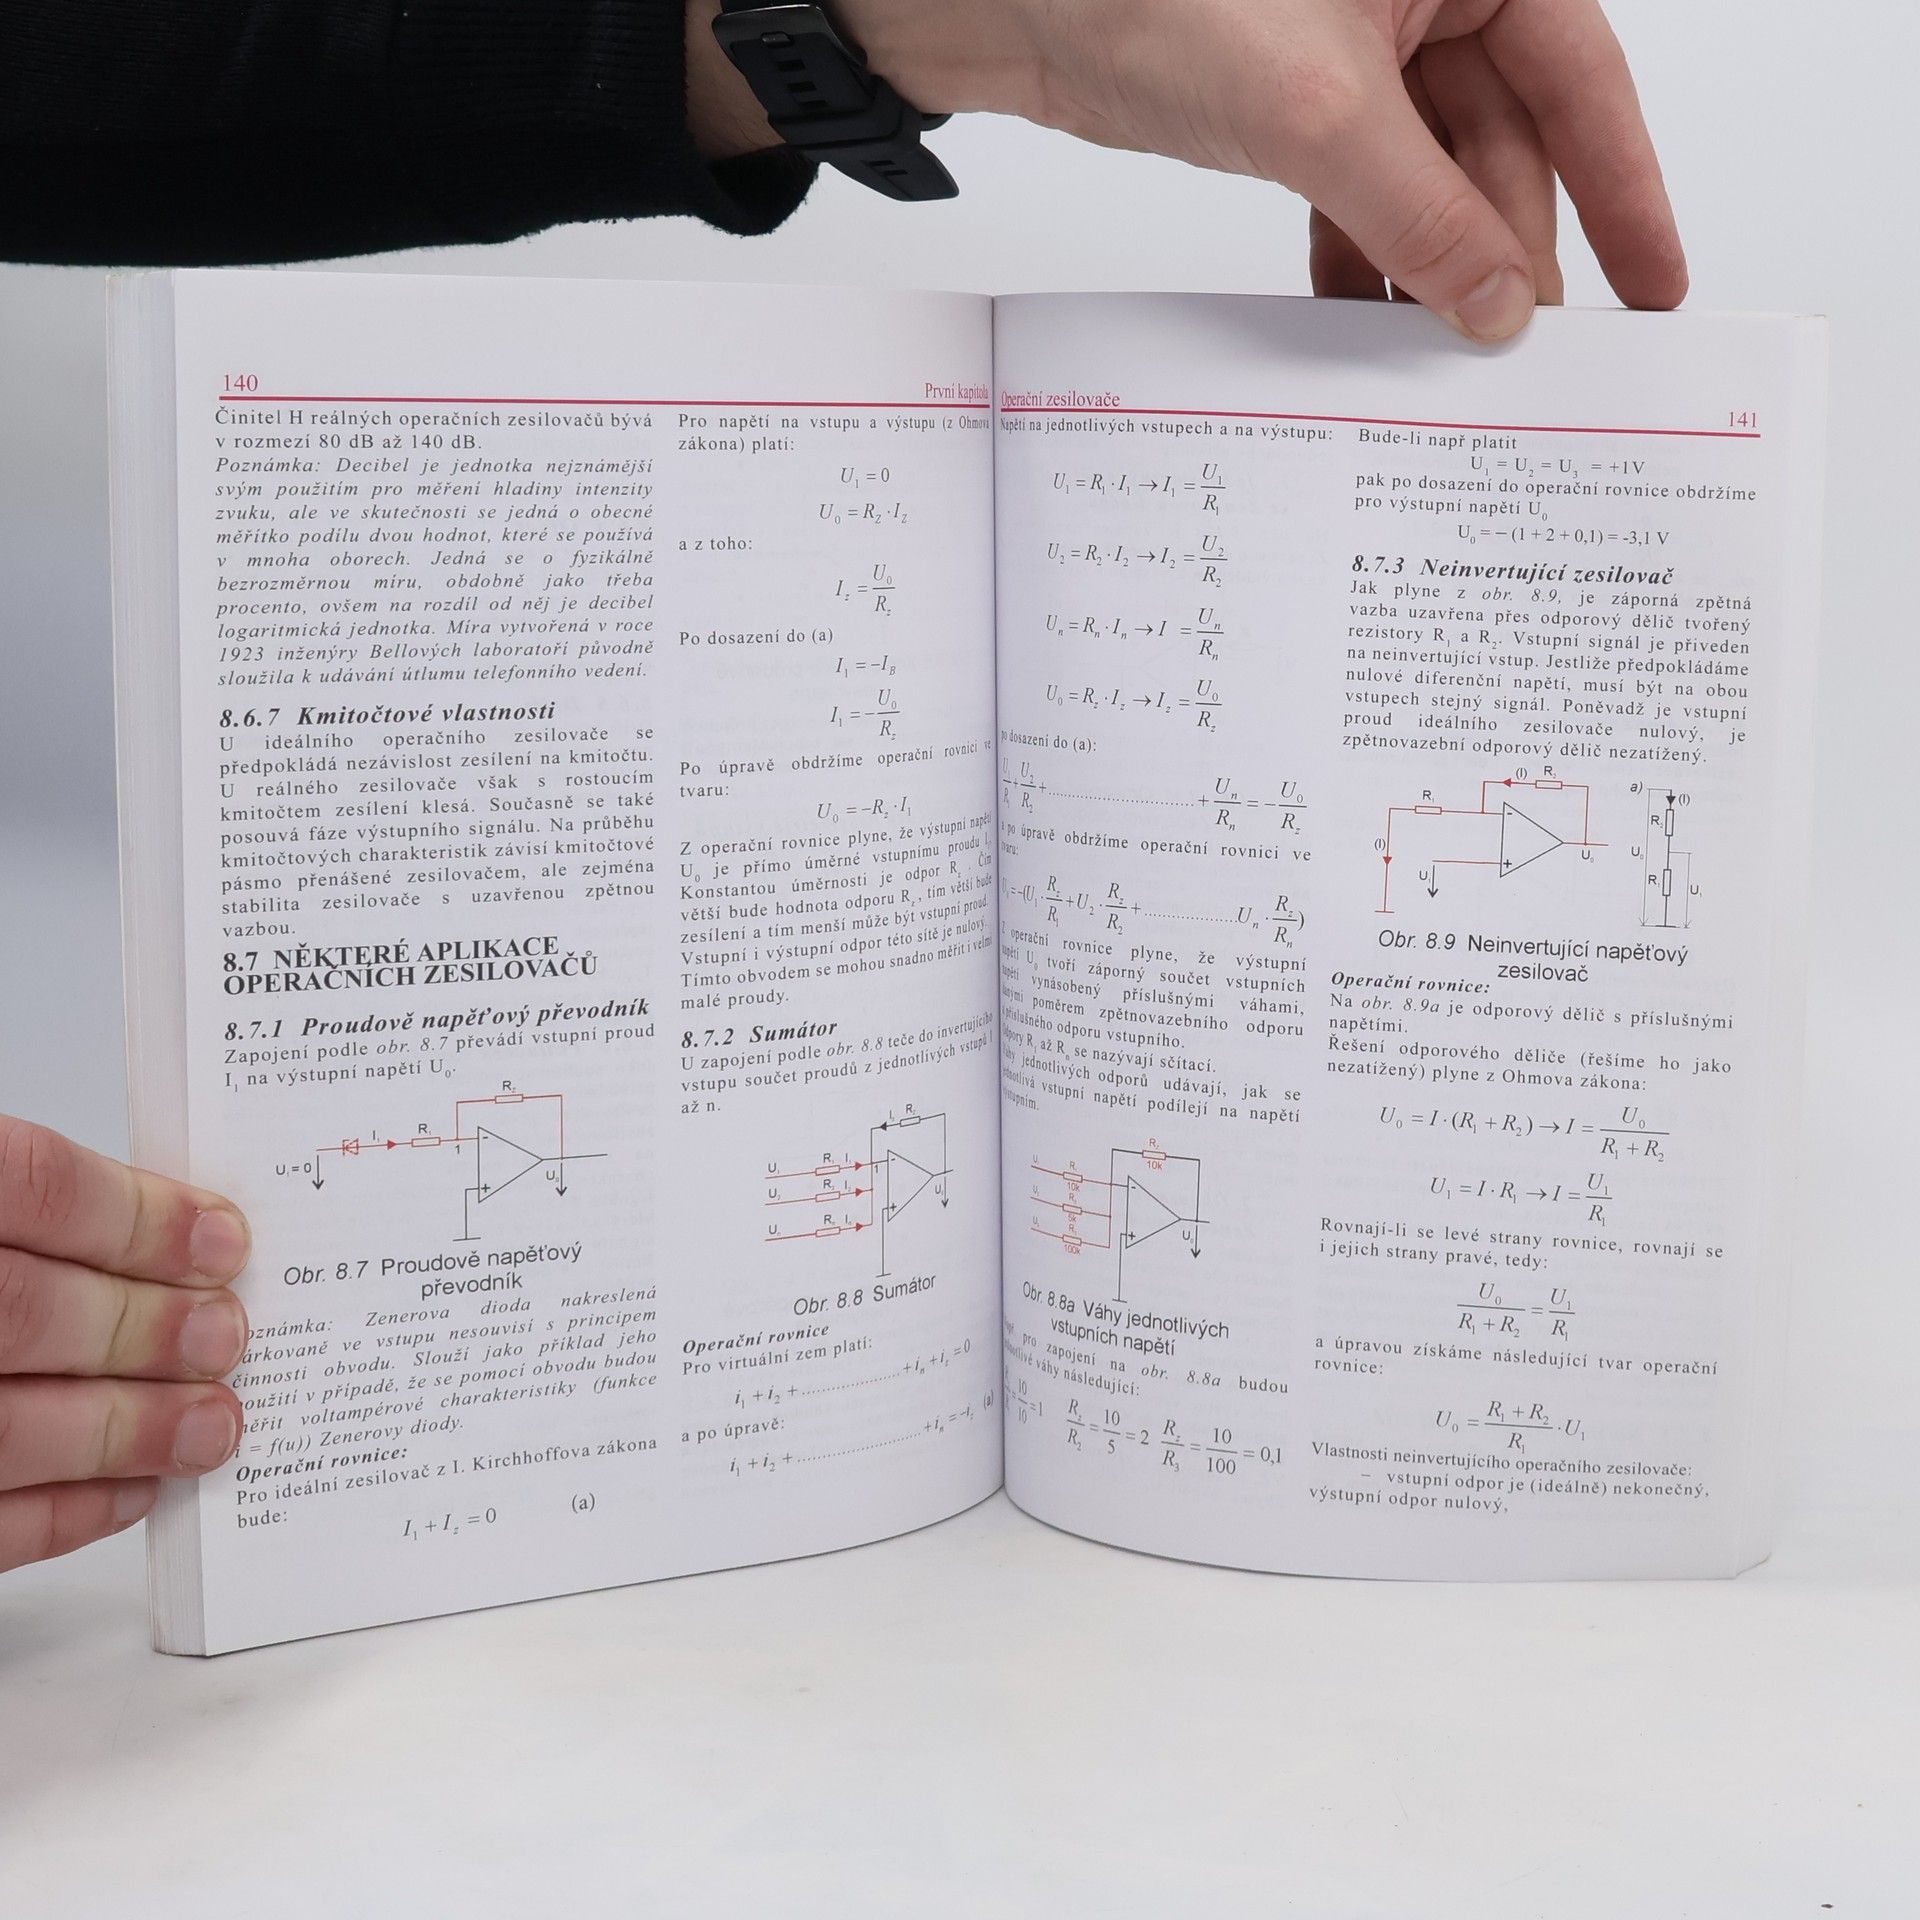 140
První kapitola
Činitel H reálných operačních zesilovačů bývá
v rozmezí 80 dB až 140 dB.
Poznámka: Decibel je jednotka nejznámější
svým použitím pro měření hladiny intenzity
zvuku, ale ve skutečnosti se jedná o obecné
měřítko podílu dvou hodnot, které se používá
v mnoha oborech. Jedná se o fyzikálně
bezrozměrnou míru, obdobně jako třeba
procento, ovšem na rozdíl od něj je decibel
logaritmická jednotka. Míra vytvořená v roce
1923 inženýry Bellových laboratoří původně
sloužila k udávání útlumu telefonního vedení.
8.6.7 Kmitočtové vlastnosti
U ideálního operačního zesilovače se
předpokládá nezávislost zesílení na kmitočtu.
U reálného zesilovače však s rostoucím
kmitočtem zesílení klesá. Současně se také
posouvá fáze výstupního signálu. Na průběhu
kmitočtových charakteristik závisí kmitočtové
pásmo přenášené zesilovačem, ale zejména
stabilita zesilovače s uzavřenou zpětnou
vazbou.
8.7 NĚKTERÉ APLIKACE
OPERAČNÍCH ZESILOVAČŮ
8.7.1 Proudově napěťový převodník
Zapojení podle obr. 8.7 převádí vstupní proud
I₁ na výstupní napětí U₀.
R_z
I₁ R₁ 1 -
U₁=0 + U₀
Obr. 8.7 Proudově napěťový
převodník
Zenerova dioda nakreslená
ve vstupu nesouvisí s principem
činnosti obvodu. Slouží jako příklad jeho
v případě, že se pomocí obvodu budou
voltampérové charakteristiky (funkce
= f(u)) Zenerovy diody.
Operační rovnice:
Pro ideální zesilovač z I. Kirchhoffova zákona
bude:
I₁ + I_z = 0 (a)
Pro napětí na vstupu a výstupu (z Ohmova
zákona) platí:
U₁ = 0
U₀ = R_Z · I_Z
a z toho:
I_z = U₀/R_z
Po dosazení do (a)
I₁ = −I_B
I₁ = −U₀/R_z
Po úpravě obdržíme operační rovnici ve
tvaru:
U₀ = −R_z · I₁
Z operační rovnice plyne, že výstupní napětí
U₀ je přímo úměrné vstupnímu proudu I₁.
Konstantou úměrnosti je odpor R_z. Čím
větší bude hodnota odporu R_z, tím větší bude
zesílení a tím menší může být vstupní proud.
Vstupní i výstupní odpor této sítě je nulový.
Tímto obvodem se mohou snadno měřit i velmi
malé proudy.
8.7.2 Sumátor
U zapojení podle obr. 8.8 teče do invertujícího
vstupu součet proudů z jednotlivých vstupů 1
až n.
I_z R_z
U₁ R₁ I₁ 1 -
U₂ R₂ I₂
U_n R_n I_n + U₀
Obr. 8.8 Sumátor
Operační rovnice
Pro virtuální zem platí:
i₁ + i₂ + .................. + i_n + i_z = 0
a po úpravě:
i₁ + i₂ + .................. + i_n = −i_z (a)
Operační zesilovače
141
Napětí na jednotlivých vstupech a na výstupu:
U₁ = R₁ · I₁ → I₁ = U₁/R₁
U₂ = R₂ · I₂ → I₂ = U₂/R₂
U_n = R_n · I_n → I = U_n/R_n
U₀ = R_z · I_z → I_z = U₀/R_z
po dosazení do (a):
U₁/R₁ + U₂/R₂ + .................. + U_n/R_n = −U₀/R_z
a po úpravě obdržíme operační rovnici ve
tvaru:
U₀ = −(U₁ · R_z/R₁ + U₂ · R_z/R₂ + .................. U_n · R_z/R_n)
Z operační rovnice plyne, že výstupní
napětí U₀ tvoří záporný součet vstupních
napětí vynásobený příslušnými váhami,
danými poměrem zpětnovazebního odporu
a příslušného odporu vstupního.
Odpory R₁ až R_n se nazývají sčítací.
Váhy jednotlivých odporů udávají, jak se
jednotlivá vstupní napětí podílejí na napětí
výstupním.
R_z
10k
U₁ R₁ 10k -
U₂ R₂ 5k
U₃ R₃ 100k + U₀
Obr. 8.8a Váhy jednotlivých
vstupních napětí
pro zapojení na obr. 8.8a budou
jednotlivé váhy následující:
10/10 = 1 R_z/R₂ = 10/5 = 2 R_z/R₃ = 10/100 = 0,1
Bude-li např platit
U₁ = U₂ = U₃ = +1V
pak po dosazení do operační rovnice obdržíme
pro výstupní napětí U₀
U₀ = − (1 + 2 + 0,1) = -3,1 V
8.7.3 Neinvertující zesilovač
Jak plyne z obr. 8.9, je záporná zpětná
vazba uzavřena přes odporový dělič tvořený
rezistory R₁ a R₂. Vstupní signál je přiveden
na neinvertující vstup. Jestliže předpokládáme
nulové diferenční napětí, musí být na obou
vstupech stejný signál. Poněvadž je vstupní
proud ideálního zesilovače nulový, je
zpětnovazební odporový dělič nezatížený.
(I) R₂ a) (I)
R₁ - R₂
(I) U₀ U₀
U₁ + R₁ U₁
Obr. 8.9 Neinvertující napěťový
zesilovač
Operační rovnice:
Na obr. 8.9a je odporový dělič s příslušnými
napětími.
Řešení odporového děliče (řešíme ho jako
nezatížený) plyne z Ohmova zákona:
U₀ = I · (R₁ + R₂) → I = U₀/(R₁ + R₂)
U₁ = I · R₁ → I = U₁/R₁
Rovnají-li se levé strany rovnice, rovnají se
i jejich strany pravé, tedy:
U₀/(R₁ + R₂) = U₁/R₁
a úpravou získáme následující tvar operační
rovnice:
U₀ = (R₁ + R₂)/R₁ · U₁
Vlastnosti neinvertujícího operačního zesilovače:
– vstupní odpor je (ideálně) nekonečný,
výstupní odpor nulový,